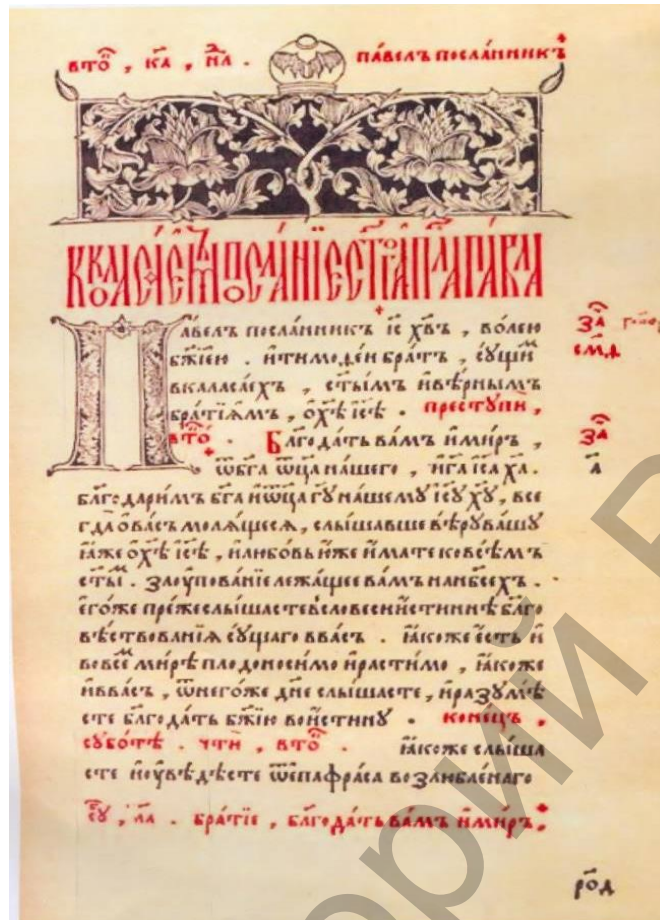 вто҇ , к҃а , н҃л . па́велъ посла́нникъ
Кколасаемъ посланїе ст҃го ап҃ла павла
Па́велъ посла́нникъ і҃с х҃въ , во́лею
бж҃їею . и҆тимоѳе́и бра́тъ , су́щи҇м
вкаласа́ехъ , ст҃ымъ и҆вѣ́рнымъ
бра́тїямъ , ѡ҆х҃ѣ і҆с҃ѣ . престꙋпи́ ,
вто҇ . Бл҃года́ть ва́мъ и҆ми́ръ ,
ѿбг҃а ѿц҃а на́шего , и҆г҃а і҆с҃а х҃а .
бл҃годари́мъ бг҃а и҆ѿц҃а г҃ꙋ на́шемꙋ і҆с҃ꙋ х҃ꙋ , все
гда̀ ѡ҆ва́съ молѧ́щесѧ , слы́шавше вѣ́рꙋ ва́шꙋ
ꙗ҆́же ѡ҆х҃ѣ і҆с҃ѣ , и҆любо́вь ю҆́же и҆́мате ковсѣ́мъ
ст҃ы҇м . Заоу҆пова́нїе лежа́щее ва́мъ нанб҃сехъ .
е҆го́же пре́же слы́шасте всловесѝ и҆́стиннѣ бл҃го
вѣ́ствованїѧ сꙋ́щаго вва́съ . ꙗ҆́коже є҆́сть и҆
вовсе҇м ми́рѣ плодоноси́мо и҆расти́мо , ꙗ҆́коже
и҆вва́съ , ѿнего́же дн҃е слы́шасте , и҆разꙋмѣ́
сте бл҃года́ть бж҃їю вои҆́стинꙋ . коне́цъ ,
сꙋбо́тѣ . чтѝ , вто҇ . ꙗ҆́коже слы́ша
сте и҆оу҆вѣ́дѣсте ѿе҆пафра́са возлю́бленаго
сꙋ҇ , л҃а . бра́тїе , бл҃года́ть ва́мъ и҆ми́ръ .
за҇
сн҃д
за҇
а҃
ро҇д